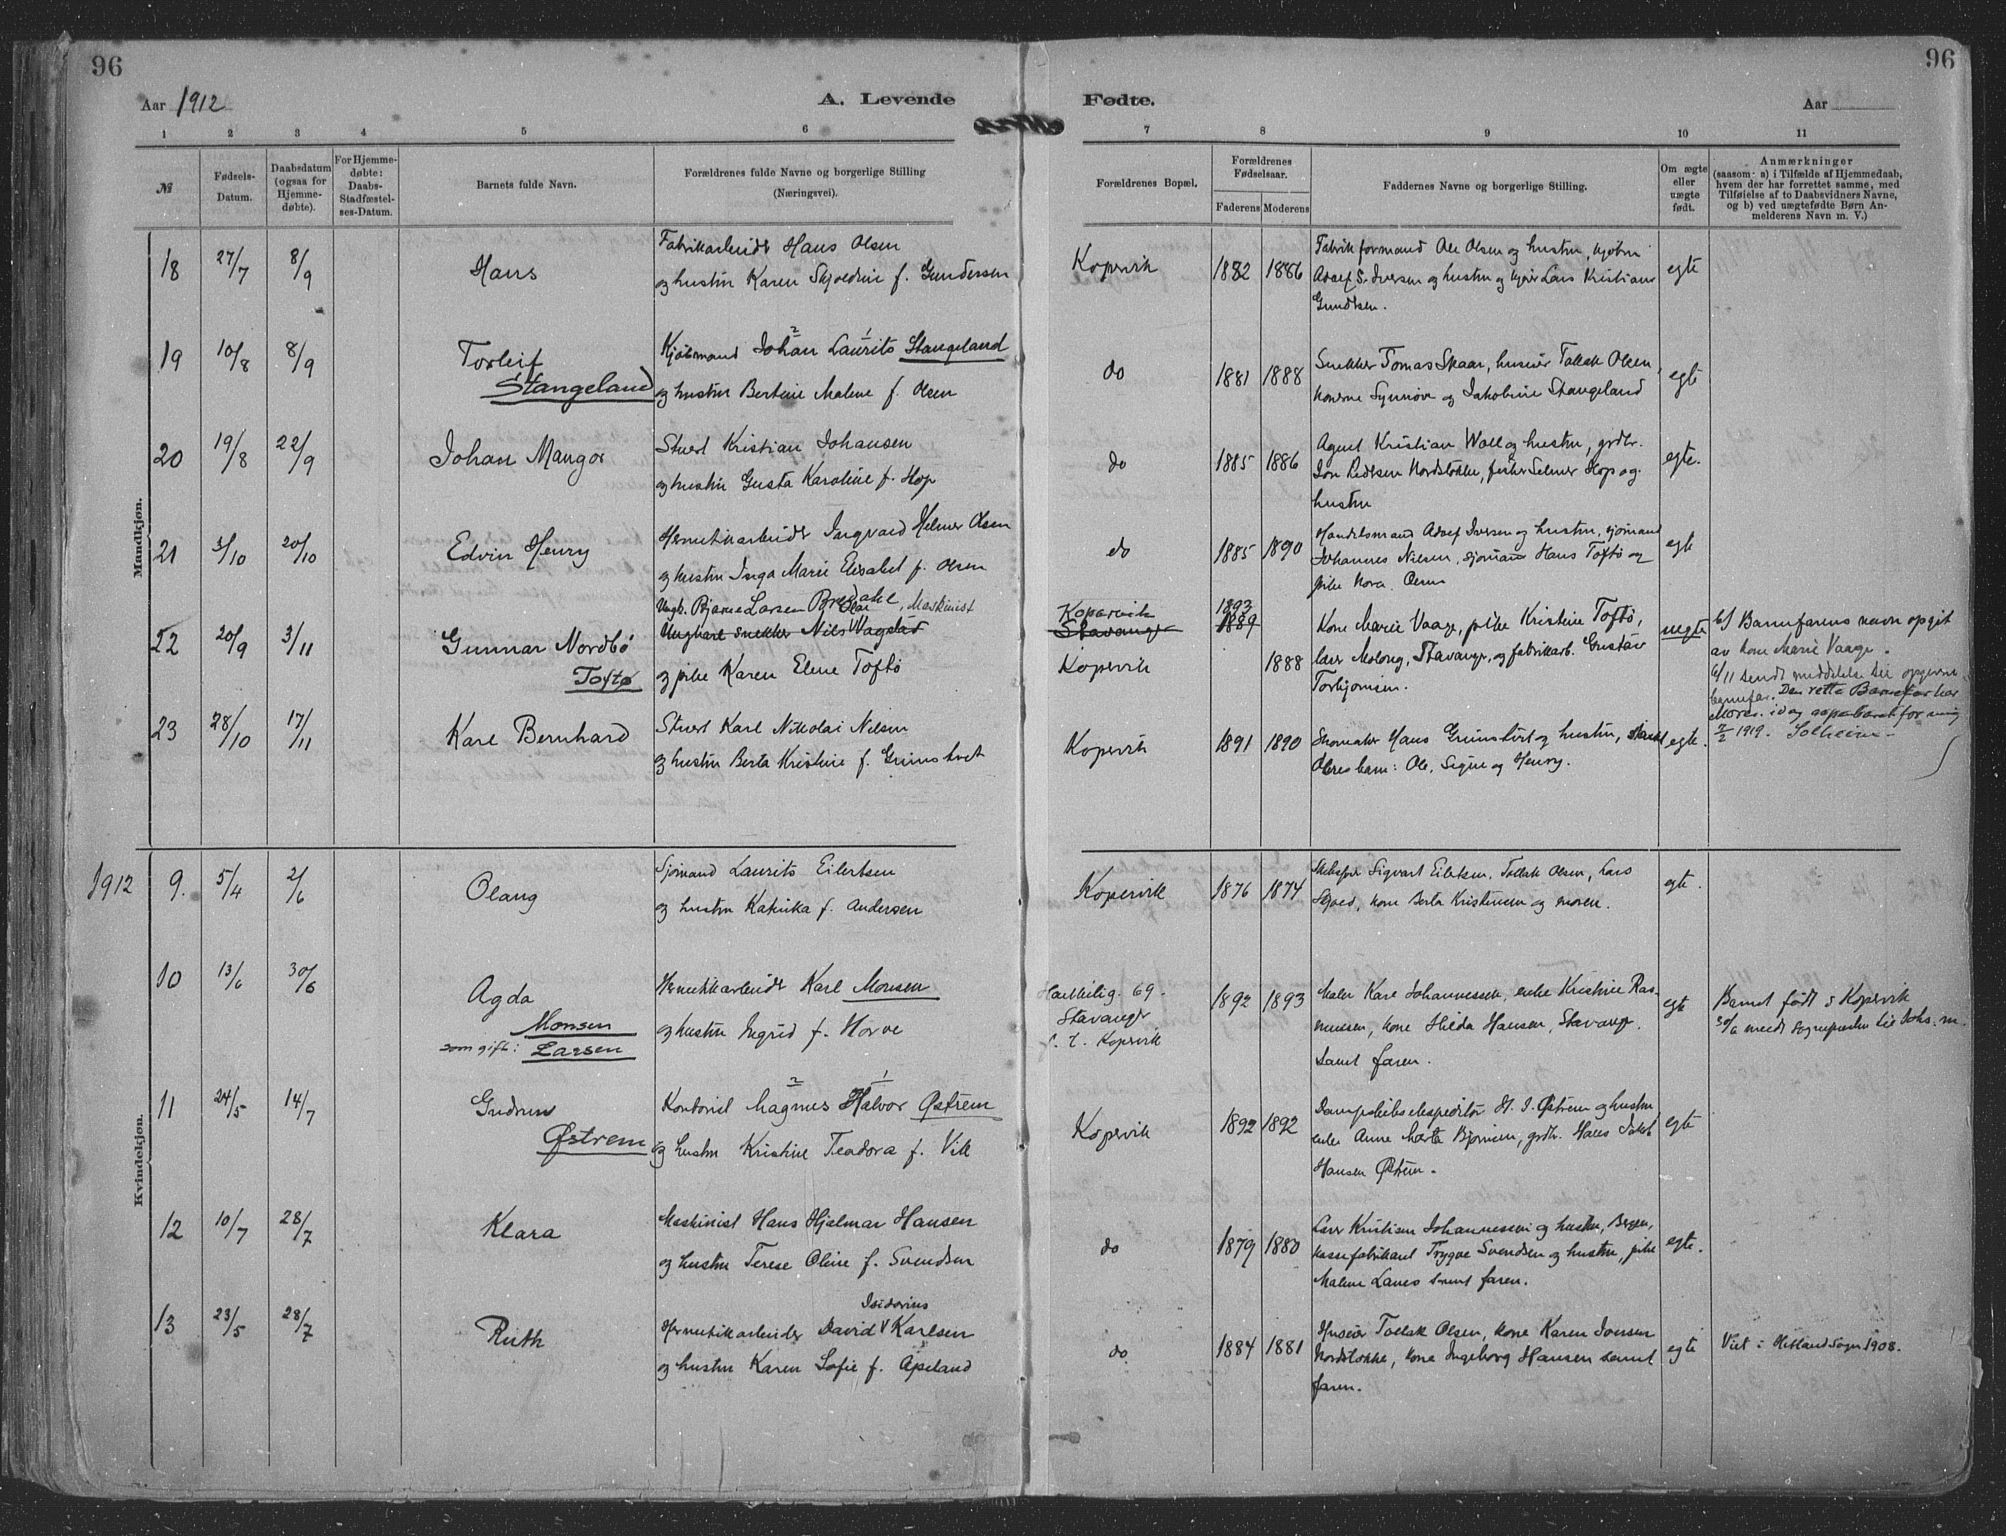 96
96
Aar 1912
A. Levende
Fødte.
Aar
1 2 3 4 5 6 7 8 9 10 11
№
Fødsels-
Datum.
Daabsdatum
(ogsaa for
Hjemme-
døbte).
For Hjemme-
døbte:
Daabs-
Stadfæstel-
ses-Datum.
Barnets fulde Navn.
Forældrenes fulde Navne og borgerlige Stilling
(Næringsvei).
Forældrenes Bopæl.
Forældrenes
Fødselsaar.
Faderens Moderens
Faddernes Navne og borgerlige Stilling.
Om ægte
eller
uægte
født.
Anmærkninger
(saasom a) i Tilfælde af Hjemmedaab,
hvem der har forrettet samme, med
Tilføielse af to Daabsvidners Navne,
og b) ved uægtefødte Børn An-
melderens Navn m. V.)
Mandkjøn.
18 27/7 8/9 Hans
Fabrikarbeider Hans Olsen
og hustru Karen Skjoldine f. Gundersen
Kopervik 1882 1886
Fabrikformand Ole Olsen og hustru,
Adolf S. Iversen og hustru og Lars Kristian
egte
19 10/8 8/9 Torleif
Stangeland
Kjøbmand Johan Laurits Stangeland
og hustru Bertine Malene f. Olsen
do 1881 1888
Snekker Tomas Skaar, huseier Tollak Olsen,
konerne Synnøve og Jakobine Stangeland
egte
20 19/8 22/9 Johan Mangor
Stuert Kristian Johansen
og hustru Gusta Karoline f. Hop
do 1885 1886
Agent Kristian Wall og hustru, grdbr.
Jon Pedersen Nordstokke, fisker Selmer Hop og
hustru
egte.
21 3/10 20/10 Edvin Henry
Hermetikarbeider Ingvald Helmer Olsen
og hustru Inga Marie Elisabet f. Olsen
do 1885 1890
Handelsmand Adolf Iversen og hustru, sjømand
Johannes Nilsen, sjømand Hans Toftø og
pike Nora Olsen
egte
22 20/9 3/11 Gunnar Nordbø
Toftø
Ungk. Bjarne Larsen Bredahl, Maskinist
Ungkarl snekker Nils Olai Vagslad
og pike Karen Elene Toftø
Kopervik
Stavanger
Kopervik
1893
1889
1888
Kone Marie Vaage, pike Kristine Toftø,
Molong, Stavanger, og fabrikarb. Gustav
Torbjørnsen.
uegte
b/ Barnefarens navn opgit
av kone Marie Vaage.
6/11 sendt meddelelse til opgivne
barnefar. Den rette Barnefar har
Moren idag aapenbaret for mig
7/2 1919. Solheim
23 28/10 17/11 Karl Bernhard
Stuert Karl Nikolai Nilsen
og hustru Berta Kristine f. Grimstvet
Kopervik 1891 1890
Skomaker Hans Grimstvet og hustru,
Olres barn: Ole, Signe og Henry.
egte.
Kvindekjøn.
1912 9. 5/4 2/6 Olaug
Sjømand Laurits Eilertsen
og hustru Katinka f. Andersen
Kopervik 1876 1874
Skibsfør Sigvart Eilertsen, Tollak Olsen, Lars
kone Berta Kristensen og moren.
egte.
10 13/6 30/6 Agda
Monsen
som gift: Larsen
Hermetikkarbeider Karl Monsen
og hustru Ingrid f. Horve
69.
Stavanger
f. t. Kopervik
1892 1893
Maler Karl Johannessen, enke Kristine Ras-
mussen, kone Hilda Hansen, Stavanger,
samt faren.
egte
Barnet født i Kopervik
30/6 meldt sognepresten til Johs. m.
11 24/5 14/7 Gudrun
Østrem
Kontorist Magnus Halvor Østrem
og hustru Kristine Teodora f. Vik
Kopervik 1892 1892
Dampskibsekspeditør H. J. Østrem og hustru
enke Anne Marta Bjørnsen, grdbr. Hans Jakob
Hansen Østrem.
egte
12 10/7 28/7 Klara
Maskinist Hans Hjalmar Hansen
og hustru Terese Oline f. Svendsen
do 1879 1880
Lærer Kristian Johannessen og hustru, Bergen,
kassefabrikant Trygve Svendsen og hustru, pike
Malene Lanes samt faren.
egte.
13 23/5 28/7 Ruth
Hermetikarbeider David Isidorius Karlsen
og hustru Karen Sofie f. Apeland
do 1884 1881
Huseier Tollak Olsen, kone Karen Jonsen
Nordstokke, kone Ingeborg Hansen samt
faren.
egte
Viet i Hetland Sogn 1908.